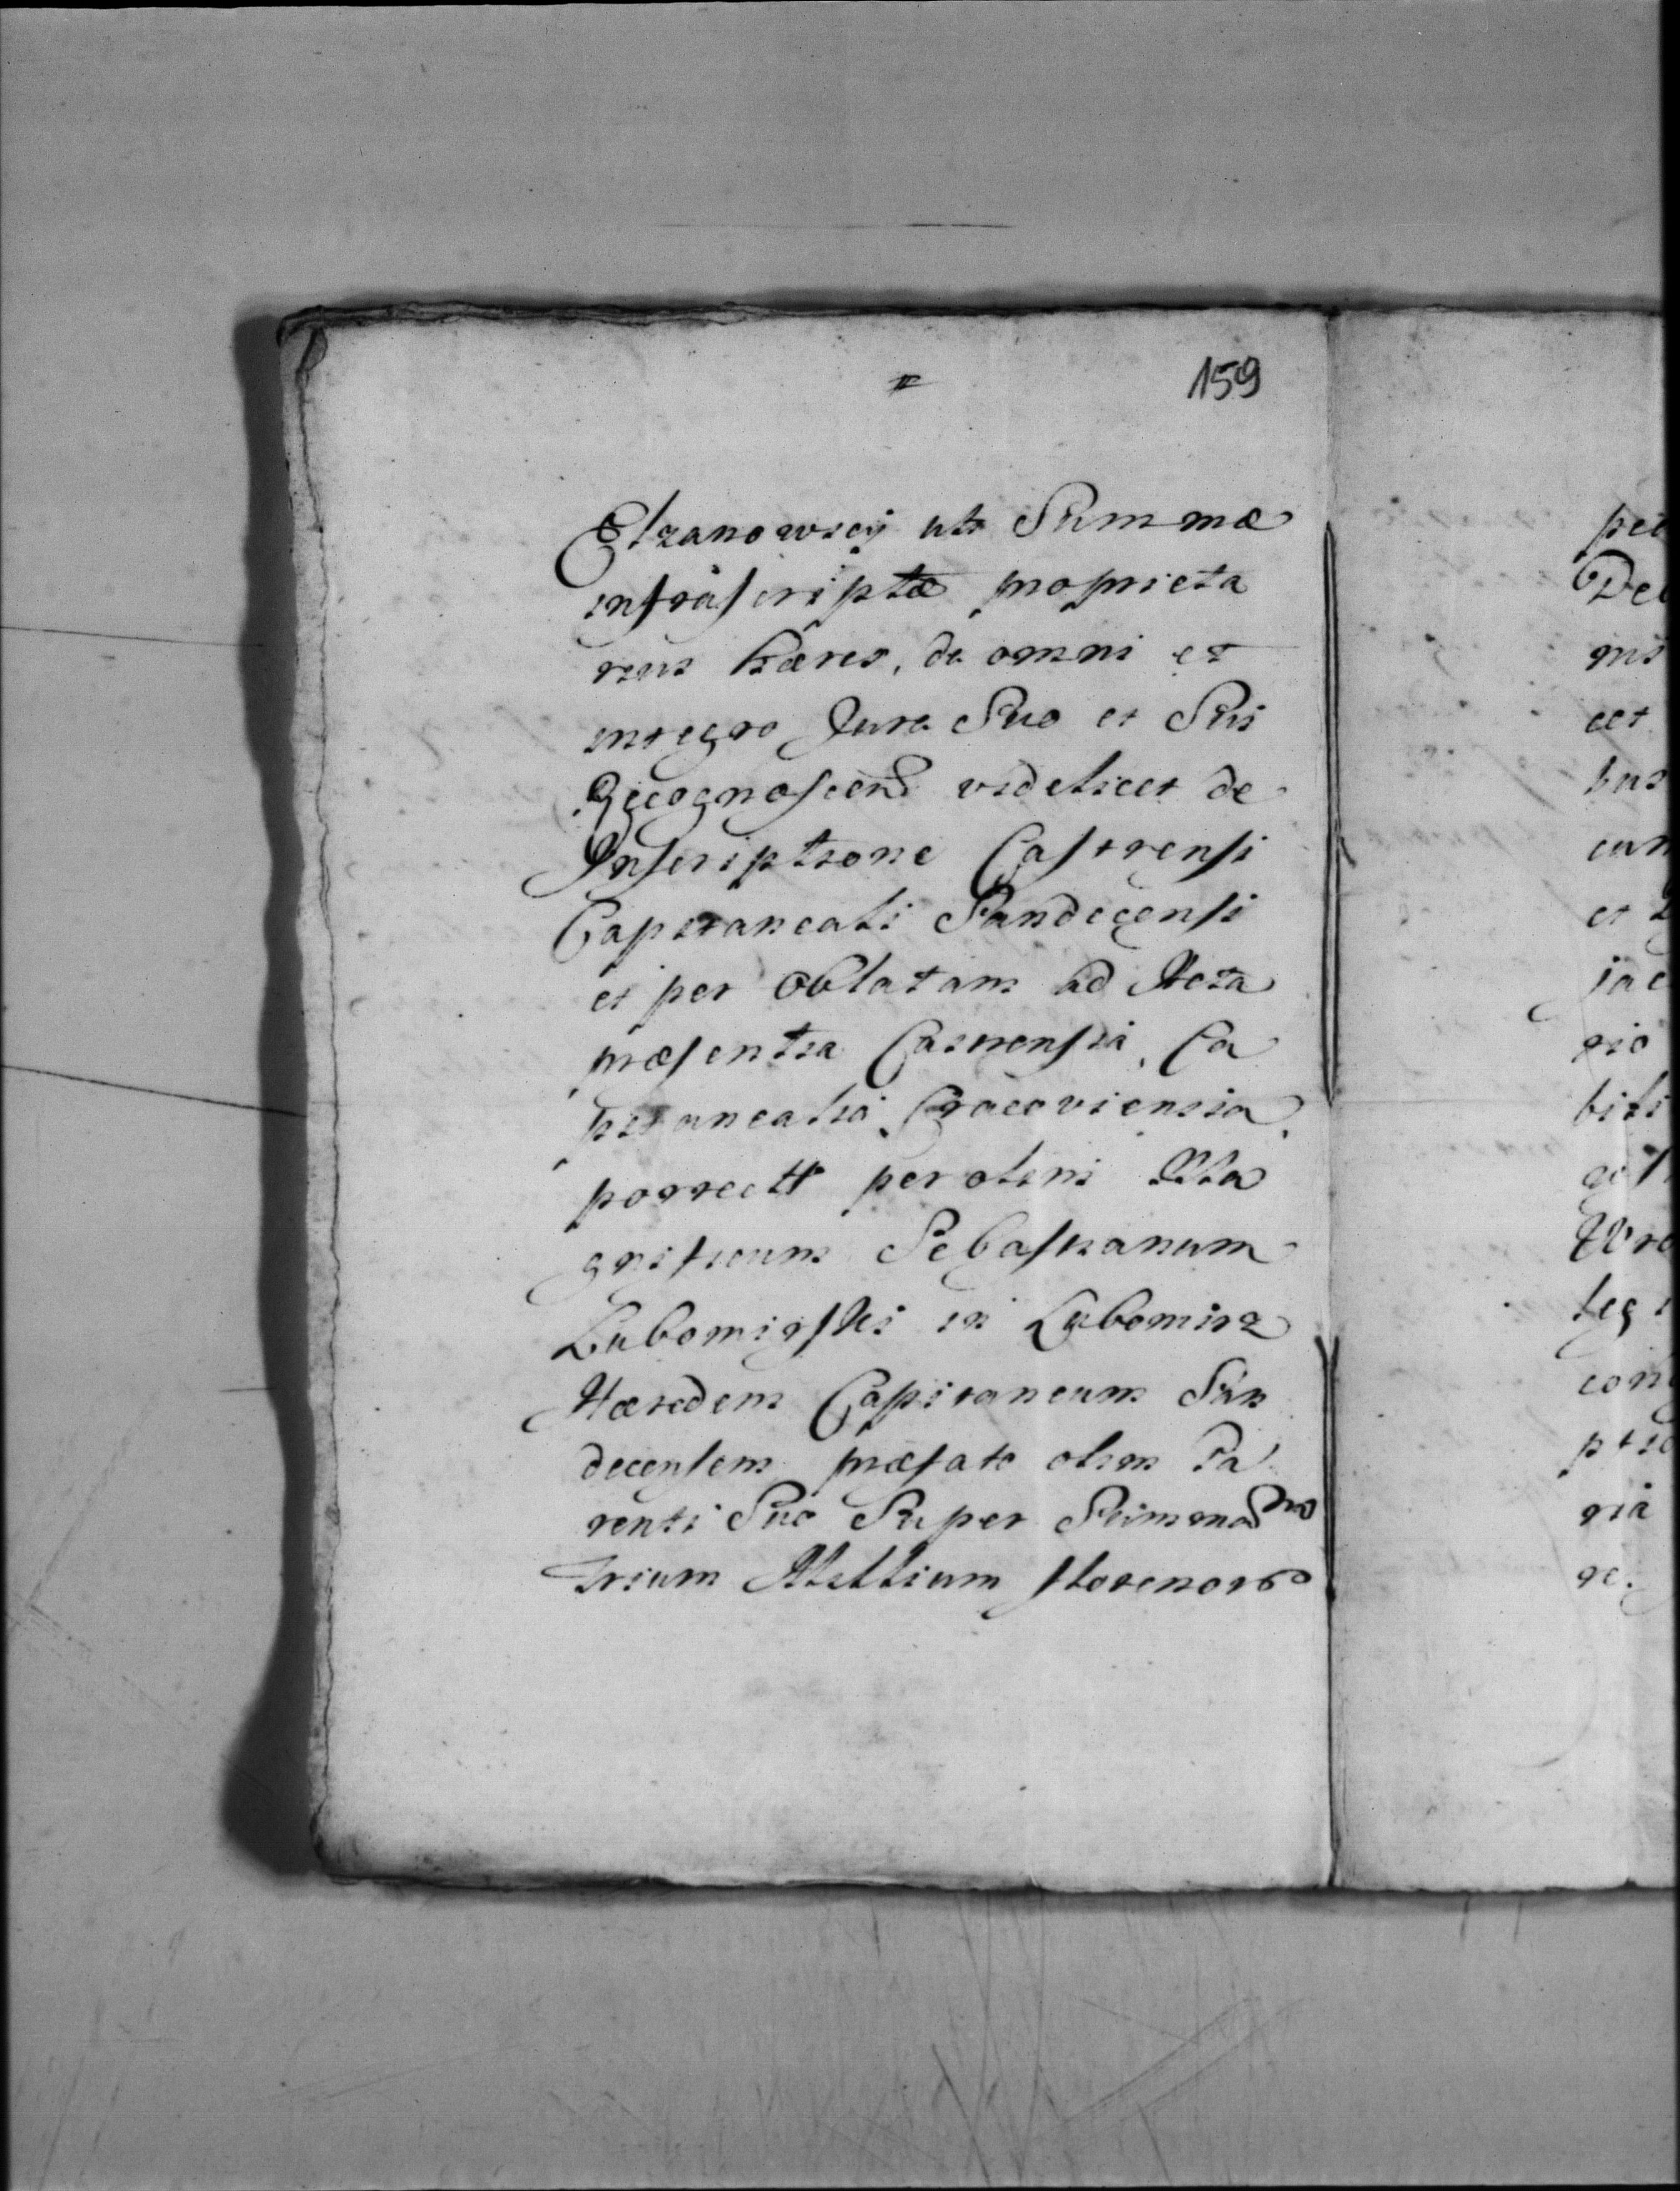 159
Elzanowscy uti Summæ
infrascriptæ proprieta
rius hæres, de omni et
integro Jure Suo et Sui
Recognoscend videlicet de
Inscriptione Castrensi
Capitaneali Sandecensi
et per Oblatam ad Acta
præsentia Castrensia, Ca
pitanealia Cracoviensia,
porrect per olim Ma
gnificum Sebastianum
Lubomirski in Lubomirz
Hæredem Capitaneum San
decensem præfato olim Pa
renti Suo Super Summa
trium Millium florenor
De
et